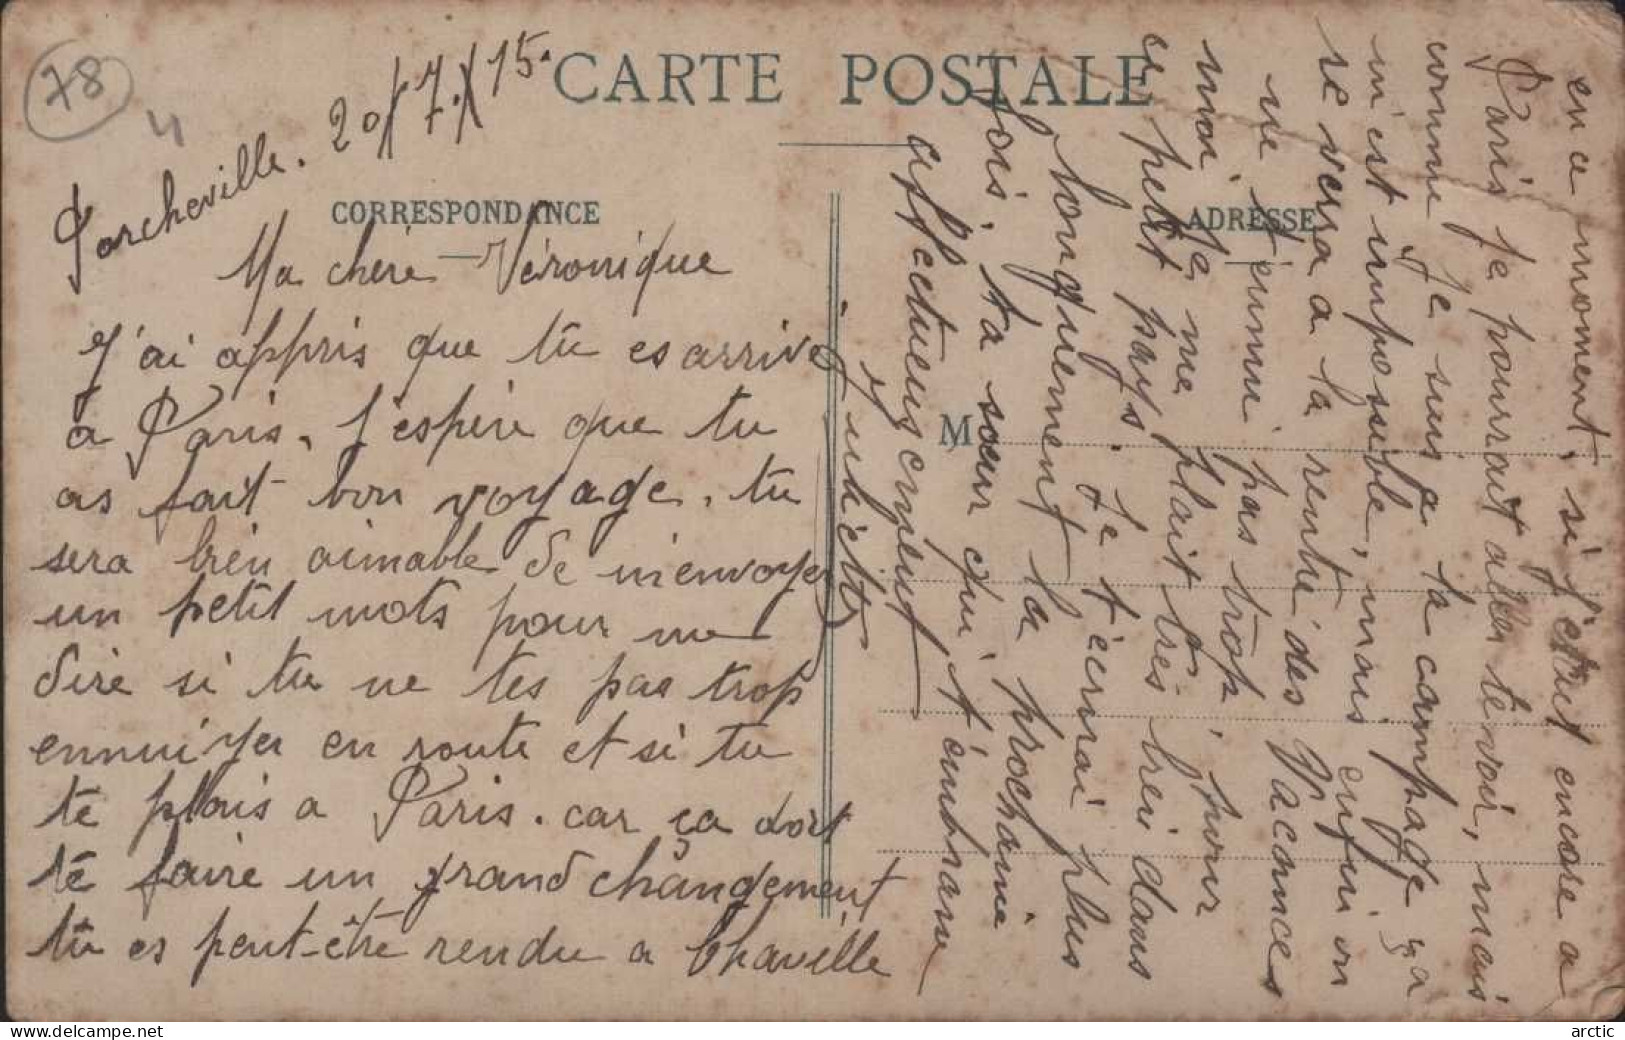 78
4
CARTE POSTALE
Porcheville. 20/7/15.
CORRESPONDANCE
ADRESSE
M
Ma chère Véronique
J'ai appris que tu es arrivé
a Paris. J'espère que tu
as fait bon voyage. tu
sera bien aimable de m'envoyer
un petit mots pour me
dire si tu ne tes pas trop
ennuiyer en route et si tu
te plais a Paris. car ça doit
te faire un grand changement
tu es peut-être rendu a Chaville
en ce moment, si j'étais encore a
Paris je pourrait aller te voir, mais
comme je suis a la campagne ça
m'est impossible, mais enfin on
se verra a la rentré des Vacances
ne t'ennui pas trop
moi je me plait très bien dans
ce petit pays. Je t'écrirai plus
longuement la prochaine
fois. ta sœur qui t'embrasse
affectueusement
Juliette
arctic